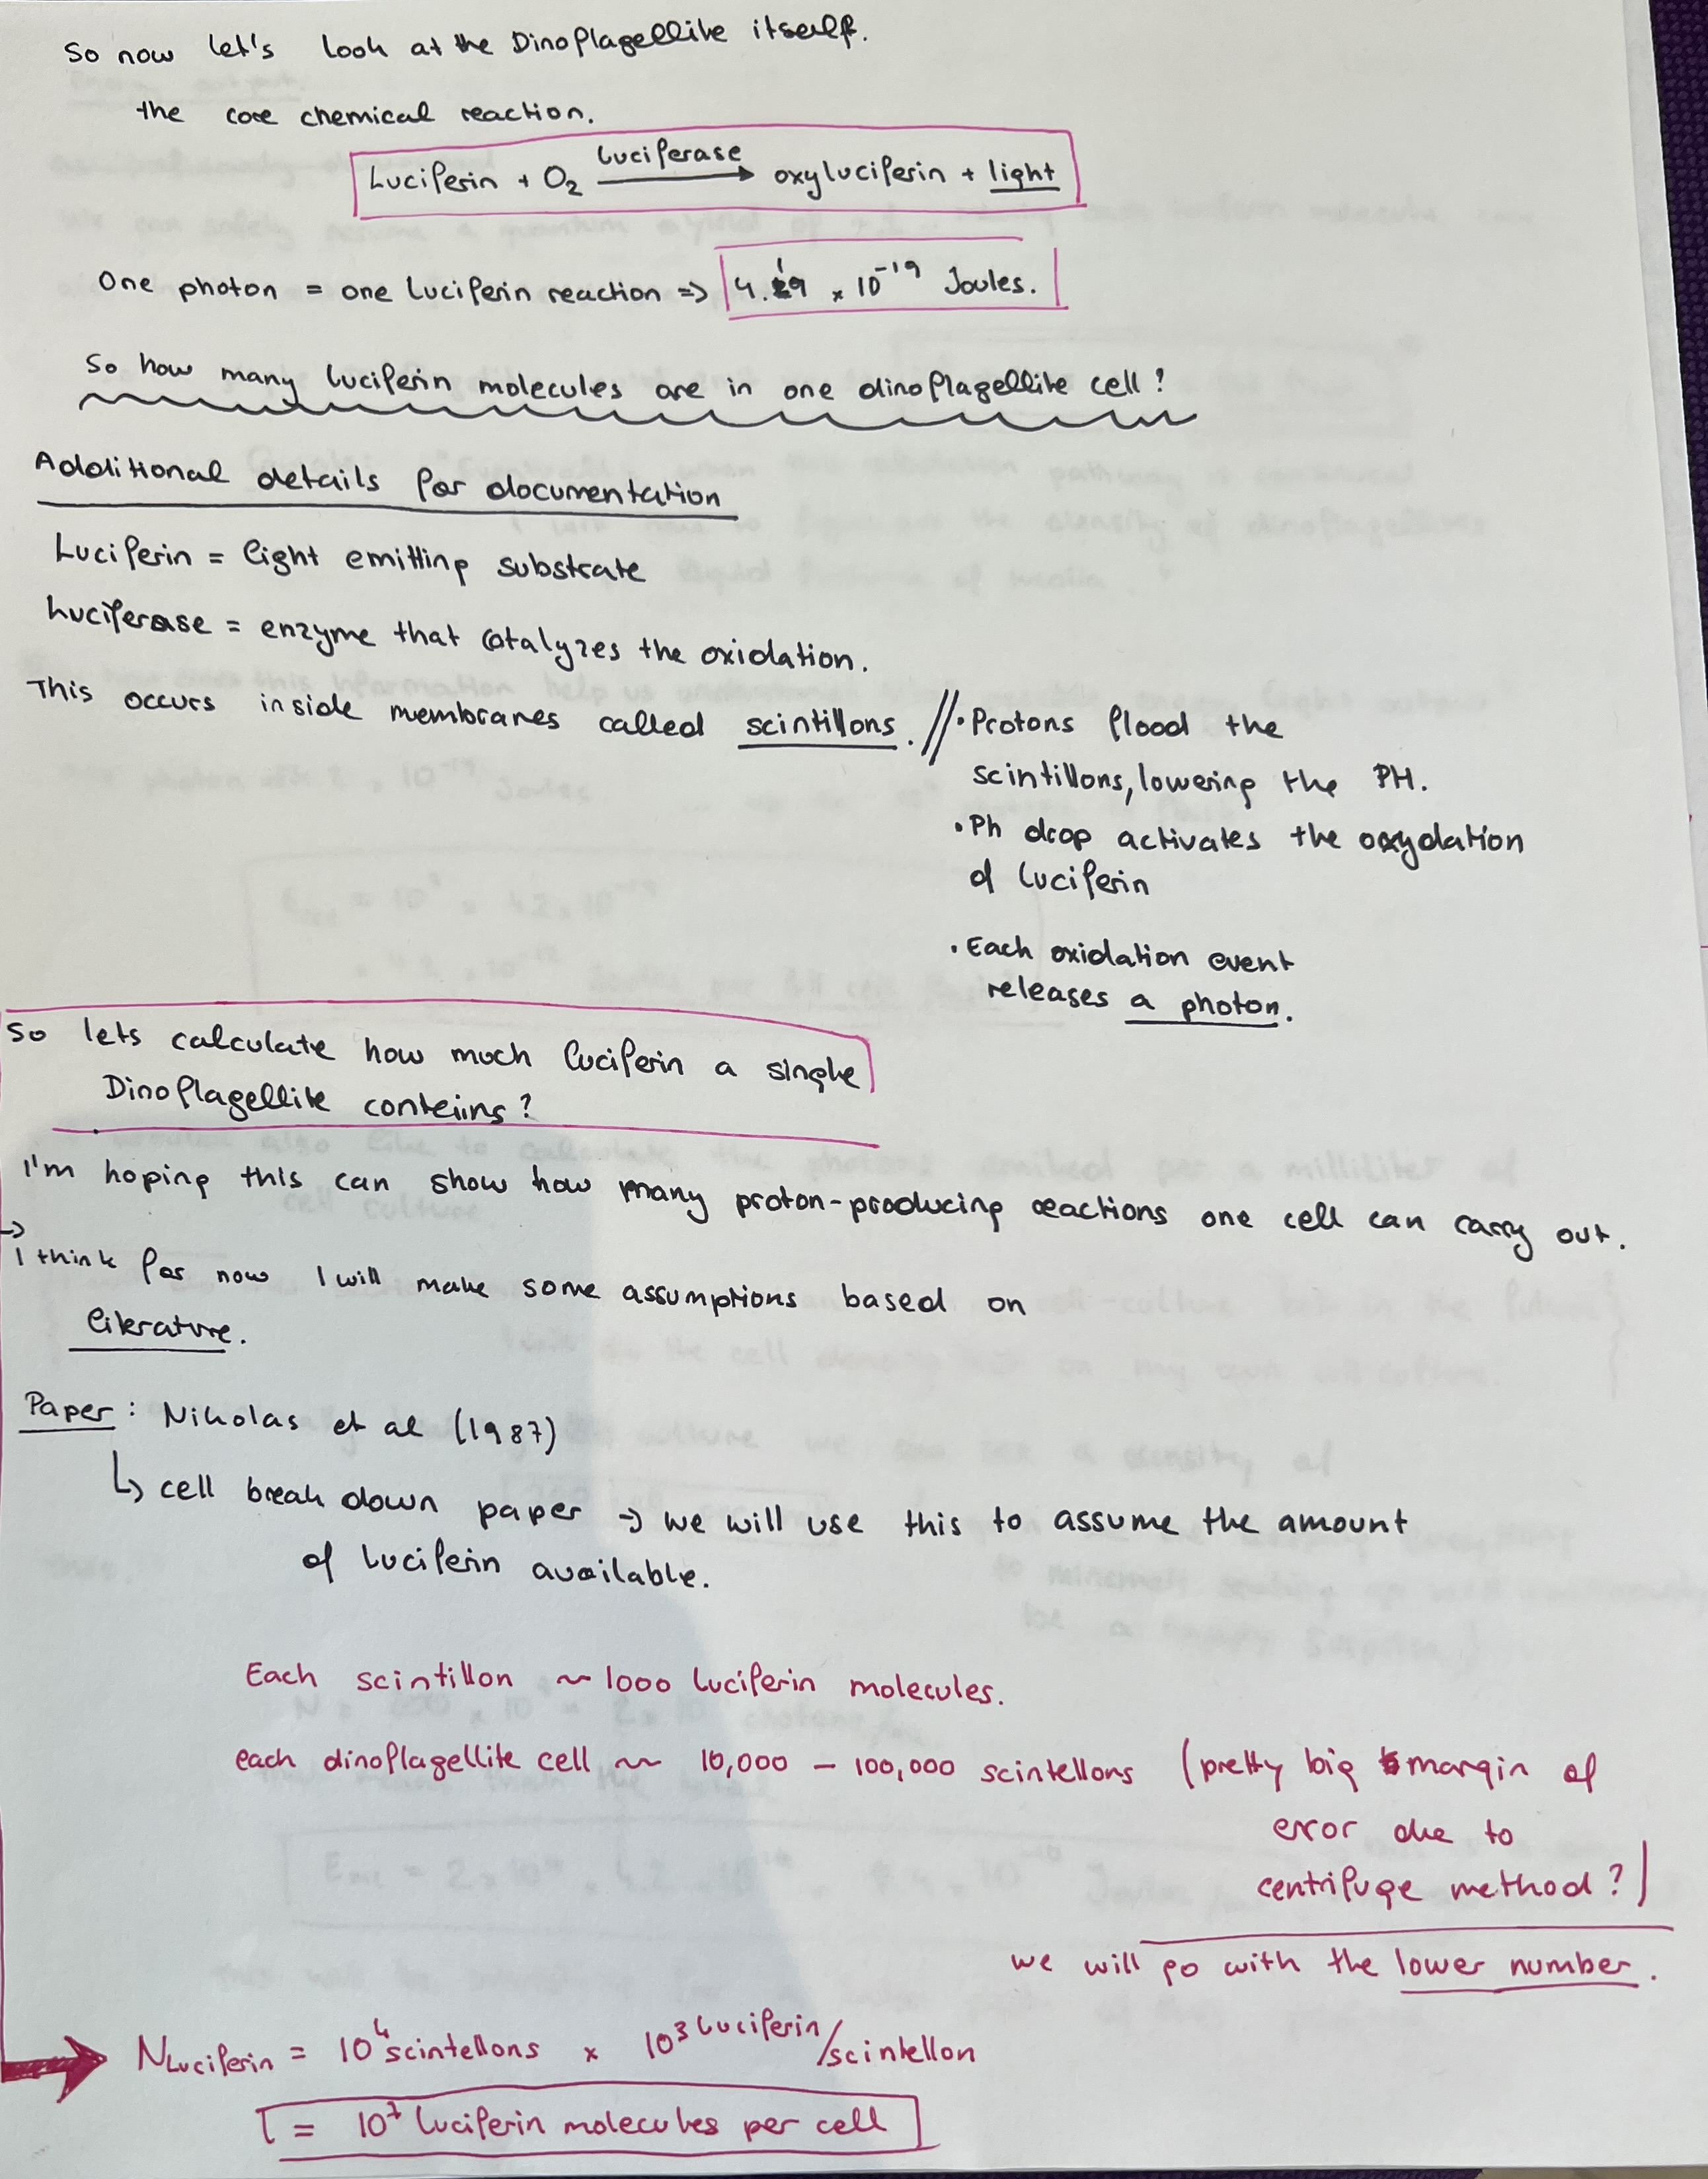 So now let's look at the Dinoflagellite itself.
the core chemical reaction.
Luciferase
Luciferin + O₂ → oxyluciferin + light
One photon = one Luciferin reaction => 4.19 × 10⁻¹⁹ Joules.
So how many luciferin molecules are in one dinoflagellite cell?
Additional details for documentation
Luciferin = light emitting substrate
Luciferase = enzyme that catalyzes the oxidation.
This occurs inside membranes called scintillons. //
• Protons flood the
scintillons, lowering the PH.
• Ph drop activates the oxydation
of luciferin
• Each oxidation event
releases a photon.
So lets calculate how much luciferin a single
Dinoflagellite conteins?
I'm hoping this can show how many proton-producing reactions one cell can carry out.
→
I think for now I will make some assumptions based on
literature.
Paper: Nikolas et al (1987)
↳ cell break down paper → we will use this to assume the amount
of luciferin available.
Each scintillon ~ 1000 luciferin molecules.
each dinoflagellite cell ~ 10,000 – 100,000 scintellons (pretty big margin of
error due to
centrifuge method?)
we will go with the lower number.
N Luciferin = 10⁴ scintellons × 10³ luciferin/scintellon
= 10⁷ luciferin molecules per cell